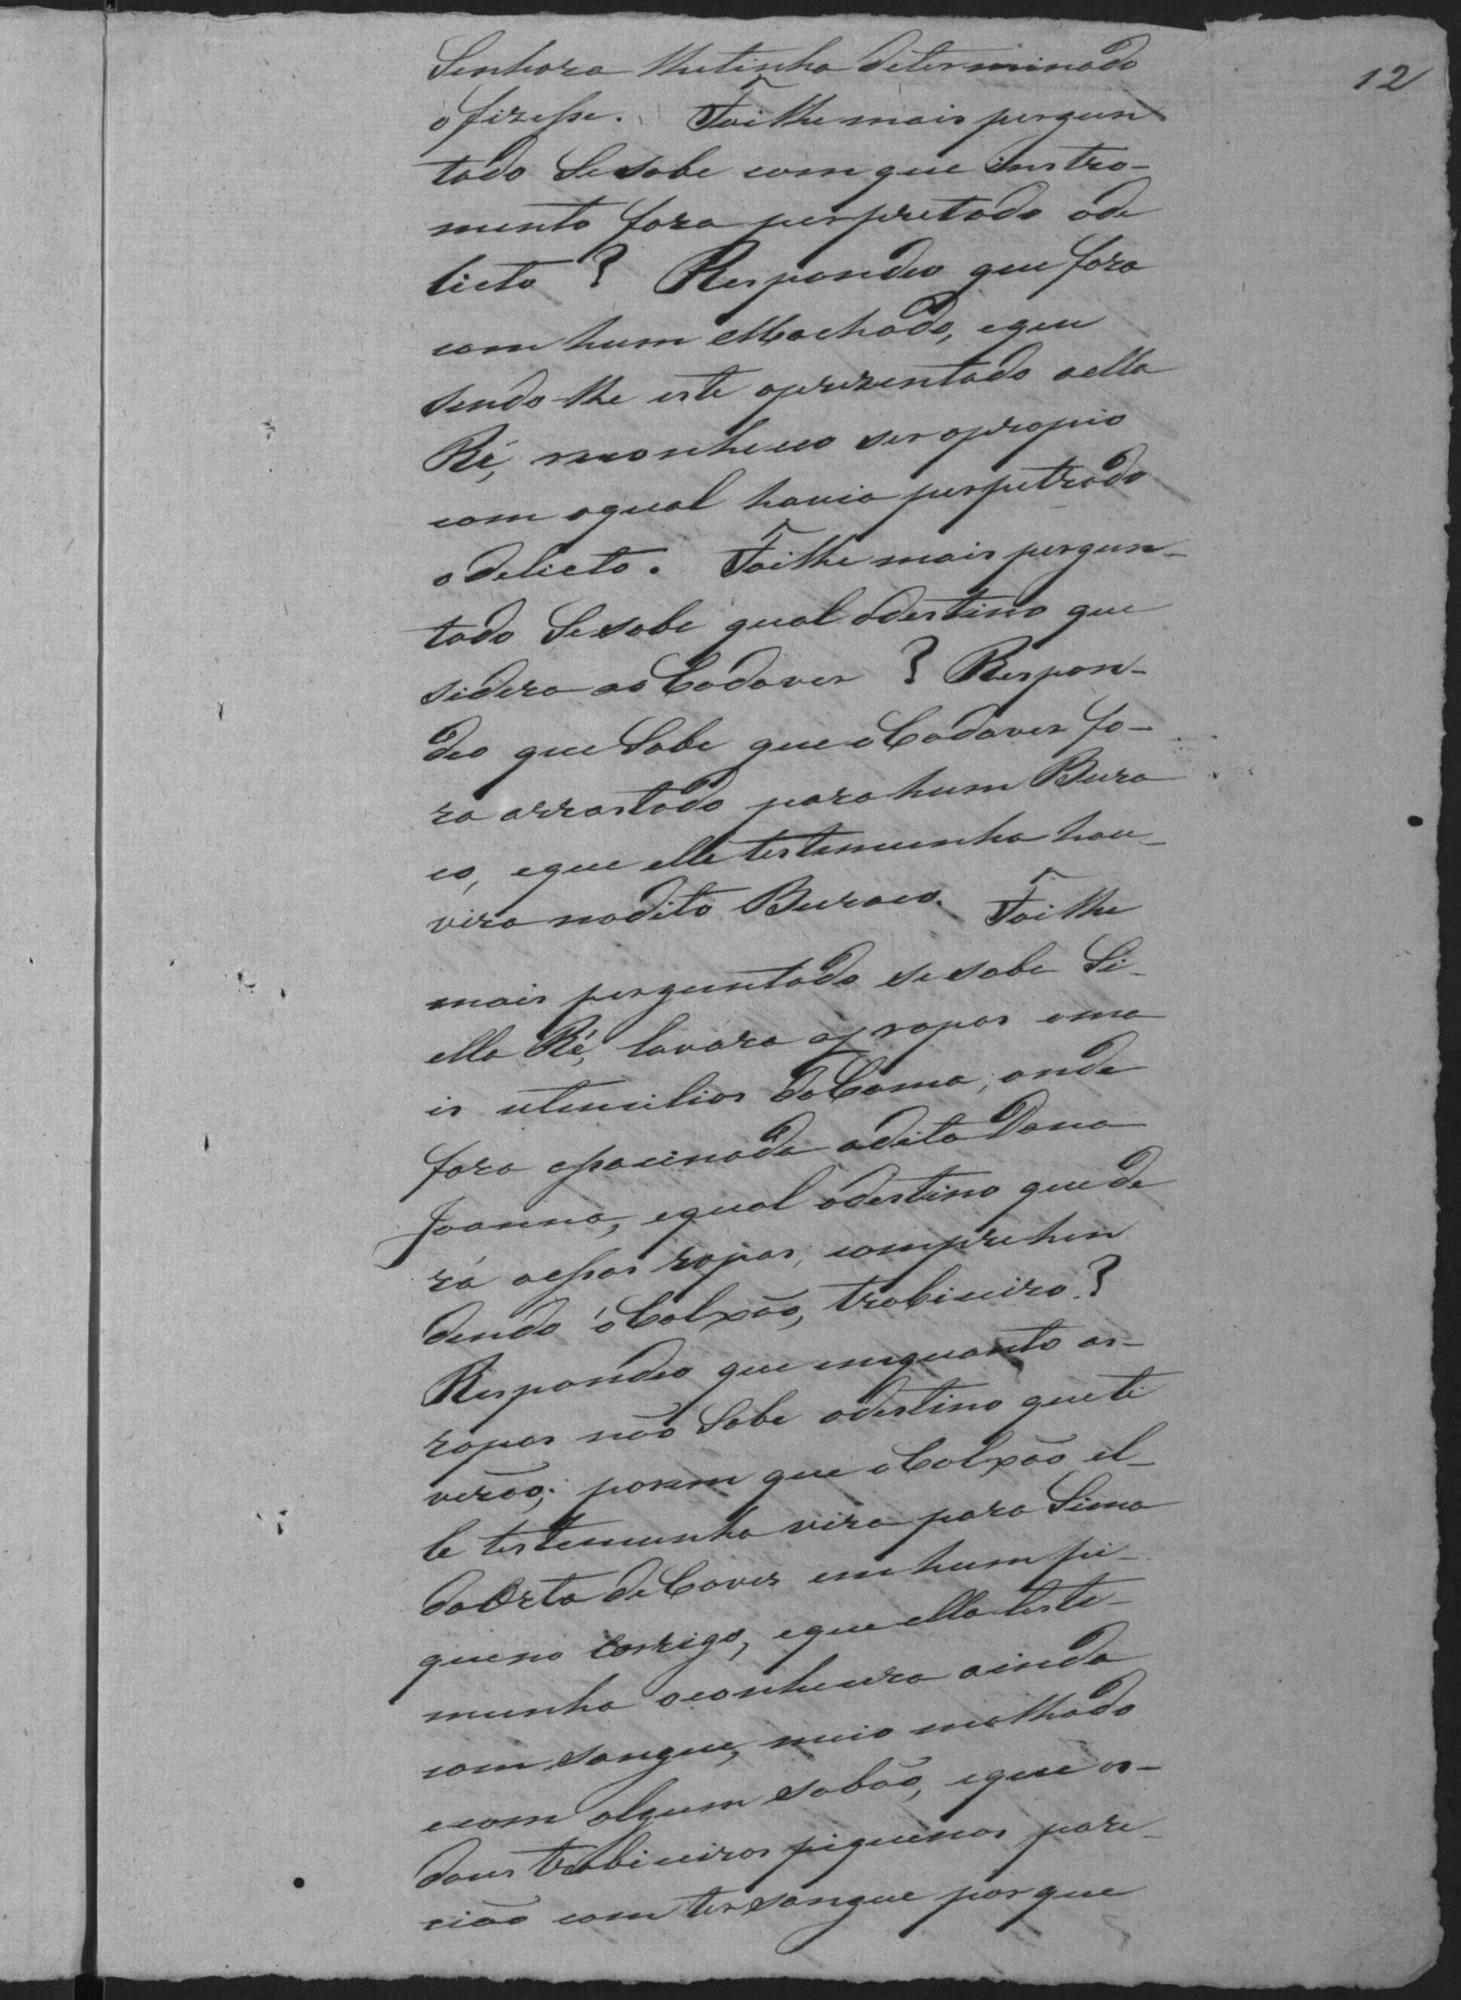 12
Senhora lhetinha determinado
ofizesse. Foilhe mais pergun
tado Sesabe com que instro-
mento fora perpretado ode
licto? Respondeo que fora
com hum Machado, eque
sendo lhe este aprezentado aella
Ré, reconheceo ser opropio
com oqual havia perpetrado
odelicto. Foilhe mais pergun-
tado Sesabe qual odestino que
sedera ao Cadaver? Respon-
deo que Sabe que o Cadaver fo-
ra arrastado para hum Bura
co, eque elle testemunha hou-
vira nodito Buraco. Foilhe
mais perguntado sesabe Si-
ella Ré, lavara as ropas ema
is utencilios da Cama, onde
fora assacinada adita Dona
Joanna, equal odestino que de
ra aessas ropas, comprehen
dendo o Colxão, trabiceiro?
Respondeo que emquanto as-
ropas não Sabe odestino que ti
verão; porem que o Colxão el-
le testemunha vira para Sima
da Orta de Coves em hum pi-
queno Corrigo, eque ella teste-
munha oconhecera ainda
com sangue, meio molhado
ecom algum sabão, eque os-
dous trabiceiros piquenos pare-
cião com ter sangue por que